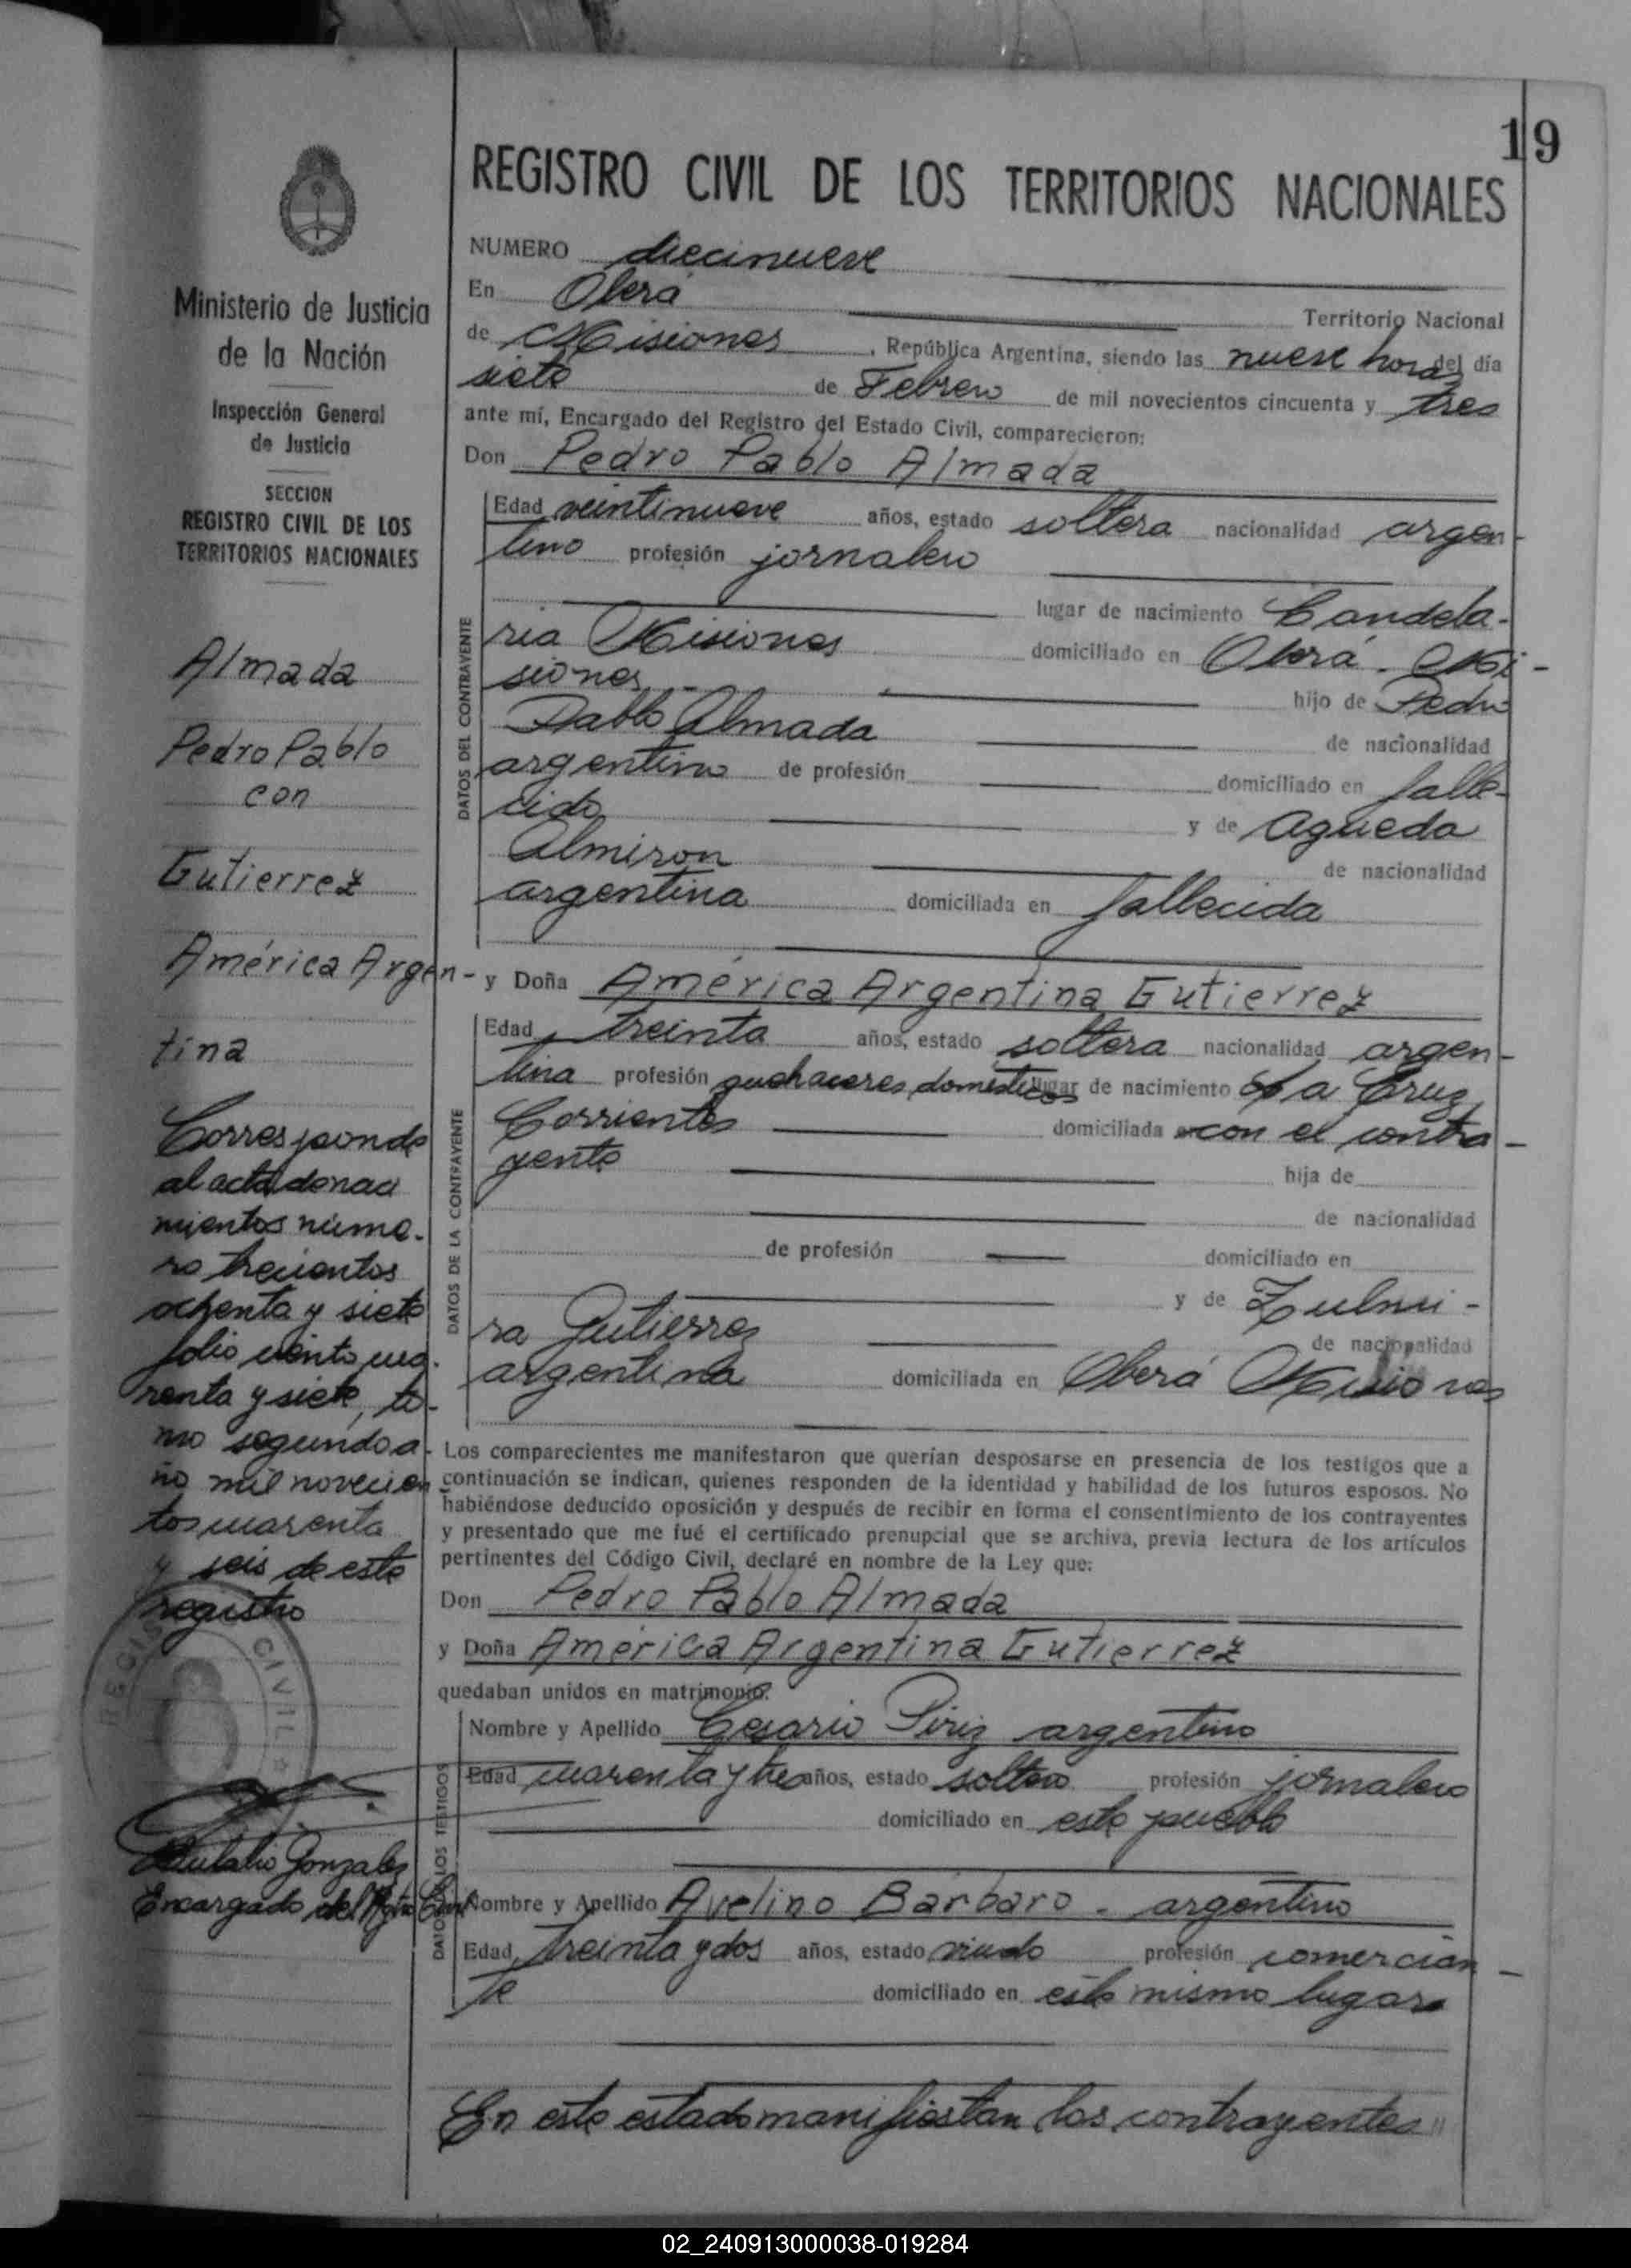 19
REGISTRO CIVIL DE LOS TERRITORIOS NACIONALES
NUMERO diecinueve
En Oberá Territorio Nacional
de Misiones, República Argentina, siendo las nueve horas del día
siete de Febrero de mil novecientos cincuenta y tres
ante mí, Encargado del Registro del Estado Civil, comparecieron:
Don Pedro Pablo Almada
DATOS DEL CONTRAYENTE
Edad veintinueve años, estado soltero nacionalidad argen-
tino profesión jornalero
lugar de nacimiento Candela-
ria Misiones domiciliado en Oberá. Mi-
siones hijo de Pedro
Pablo Almada de nacionalidad
argentino de profesión domiciliado en falle-
cido y de Agueda
Almiron de nacionalidad
argentina domiciliada en fallecida
y Doña América Argentina Gutierrez
DATOS DE LA CONTRAYENTE
Edad treinta años, estado soltera nacionalidad argen-
tina profesión quehaceres domésticos lugar de nacimiento La Cruz
Corrientes domiciliada con el contra-
yente hija de
de nacionalidad
de profesión domiciliado en
y de Zulmi-
ra Gutierrez de nacionalidad
argentina domiciliada en Oberá Misiones
Los comparecientes me manifestaron que querían desposarse en presencia de los testigos que a
continuación se indican, quienes responden de la identidad y habilidad de los futuros esposos. No
habiéndose deducido oposición y después de recibir en forma el consentimiento de los contrayentes
y presentado que me fué el certificado prenupcial que se archiva, previa lectura de los artículos
pertinentes del Código Civil, declaré en nombre de la Ley que:
Don Pedro Pablo Almada
y Doña América Argentina Gutierrez
quedaban unidos en matrimonio.
DATOS DE LOS TESTIGOS
Nombre y Apellido Cesario Piriz argentino
Edad cuarenta y tres años, estado soltero profesión jornalero
domiciliado en este pueblo
Nombre y Apellido Avelino Barbaro - argentino
Edad treinta y dos años, estado viudo profesión comercian-
te domiciliado en este mismo lugar
En este estado manifiestan los contrayentes "
Ministerio de Justicia
de la Nación
Inspección General
de Justicia
SECCION
REGISTRO CIVIL DE LOS
TERRITORIOS NACIONALES
Almada
Pedro Pablo
con
Gutierrez
América Argen-
tina
Corresponde
al acta de naci
mientos núme-
ro trecientos
ochenta y siete
folio ciento cua-
renta y siete, to-
mo segundo a-
ño mil novecien
tos cuarenta
y seis de este
registro
REGISTRO CIVIL
Eulalio Gonzalez
Encargado del Rgtro Civil
02_240913000038-019284